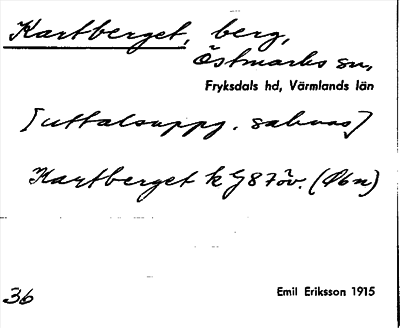 Kartberget, berg,
Östmarks sn,
Fryksdals hd, Värmlands län
[uttalsuppg. saknas]
Kartberget k G87öv. (Öbn)
36
Emil Eriksson 1915